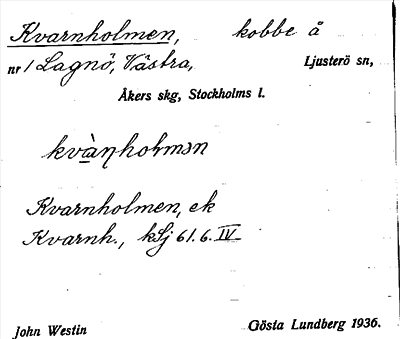 Kvarnholmen, kobbe å
nr 1 Lagnö, Västra, Ljusterö sn,
Åkers skg, Stockholms l.
kvàηholmən
Kvarnholmen, ek
Kvarnh., kSj 61.6.IV
John Westin Gösta Lundberg 1936.